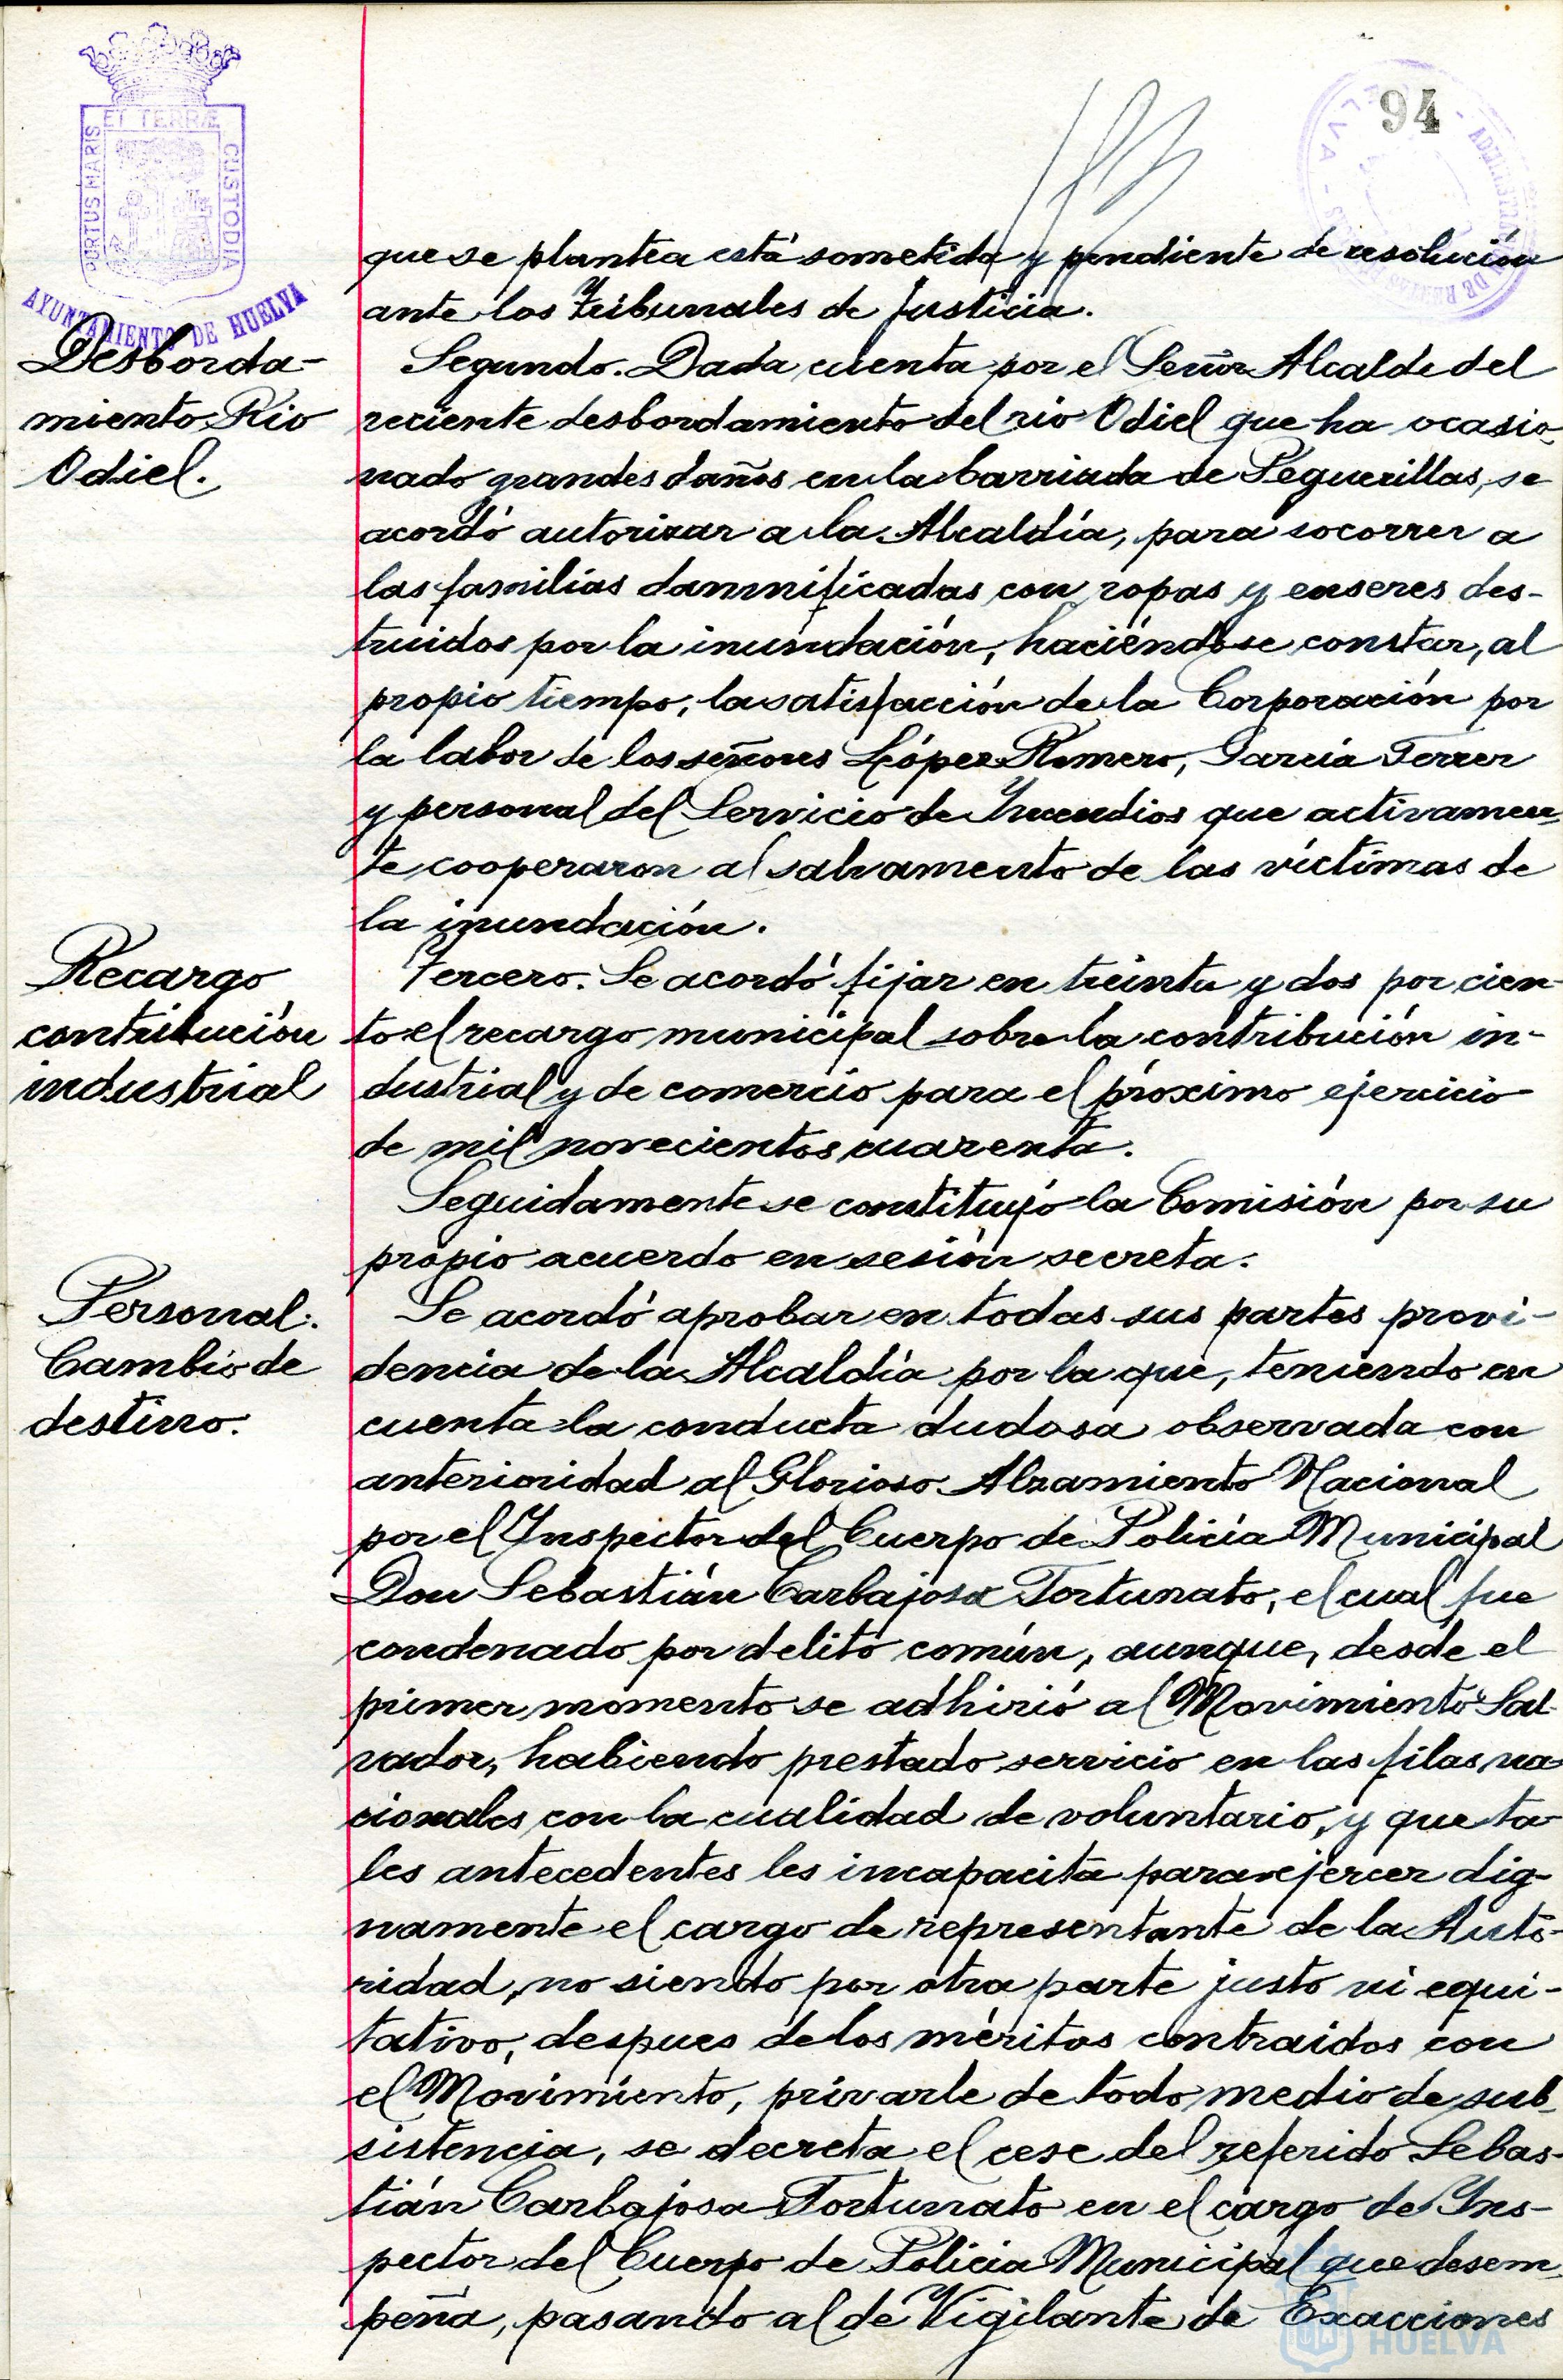 94
ET TERRÆ
PORTUS MARIS
CUSTODIA
AYUNTAMIENTO DE HUELVA
que se plantea está sometida y pendiente de resolución
ante los Tribunales de Justicia.
Desborda-
miento Rio
Odiel.
Segundo. Dada cuenta por el Señor Alcalde del
reciente desbordamiento del rio Odiel que ha ocasio-
nado grandes daños en la barriada de Peguerillas, se
acordó autorizar a la Alcaldía, para socorrer a
las familias damnificadas con ropas y enseres des-
truidos por la inundación, haciéndose constar, al
propio tiempo, la satisfacción de la Corporación por
la labor de los señores López Romero, García Ferrer
y personal del Servicio de Incendios que activamen-
te cooperaron al salvamento de las víctimas de
la inundación.
Recargo
contribución
industrial
Tercero. Se acordó fijar en treinta y dos por cien-
to el recargo municipal sobre la contribución in-
dustrial y de comercio para el próximo ejercicio
de mil novecientos cuarenta.
Seguidamente se constituyó la Comisión por su
propio acuerdo en sesión secreta.
Personal.
Cambio de
destino.
Se acordó aprobar en todas sus partes provi-
dencia de la Alcaldía por la que, teniendo en
cuenta la conducta dudosa observada con
anterioridad al Glorioso Alzamiento Nacional
por el Inspector del Cuerpo de Policía Municipal
Don Sebastián Carbajosa Fortunato, el cual fue
condenado por delito común, aunque, desde el
primer momento se adhirió al Movimiento Sal-
vador, habiendo prestado servicio en las filas na-
cionales con la cualidad de voluntario, y que ta-
les antecedentes les incapacita para ejercer dig-
namente el cargo de representante de la Auto-
ridad, no siendo por otra parte justo ni equi-
tativo, despues de los méritos contraidos con
el Movimiento, privarle de todo medio de sub-
sistencia, se decreta el cese del referido Sebas-
tián Carbajosa Fortunato en el cargo de Ins-
pector del Cuerpo de Policía Municipal que desem-
peña, pasando al de Vigilante de Exacciones
HUELVA